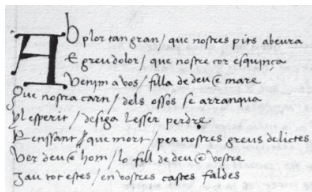 Ab plor tan gran / que nostres pits abeura
E greu dolor / que nostre cor esquinça
Venim a vos / filla de deu e mare
Que nostra carn / dels ossos se arranqua
Y l esperit / desija l esser perdre
Pensant que mort / per nostres greus delictes
Ver deu e hom / lo fill de deu e vostre
Jau tot estes / en vostres castes faldes